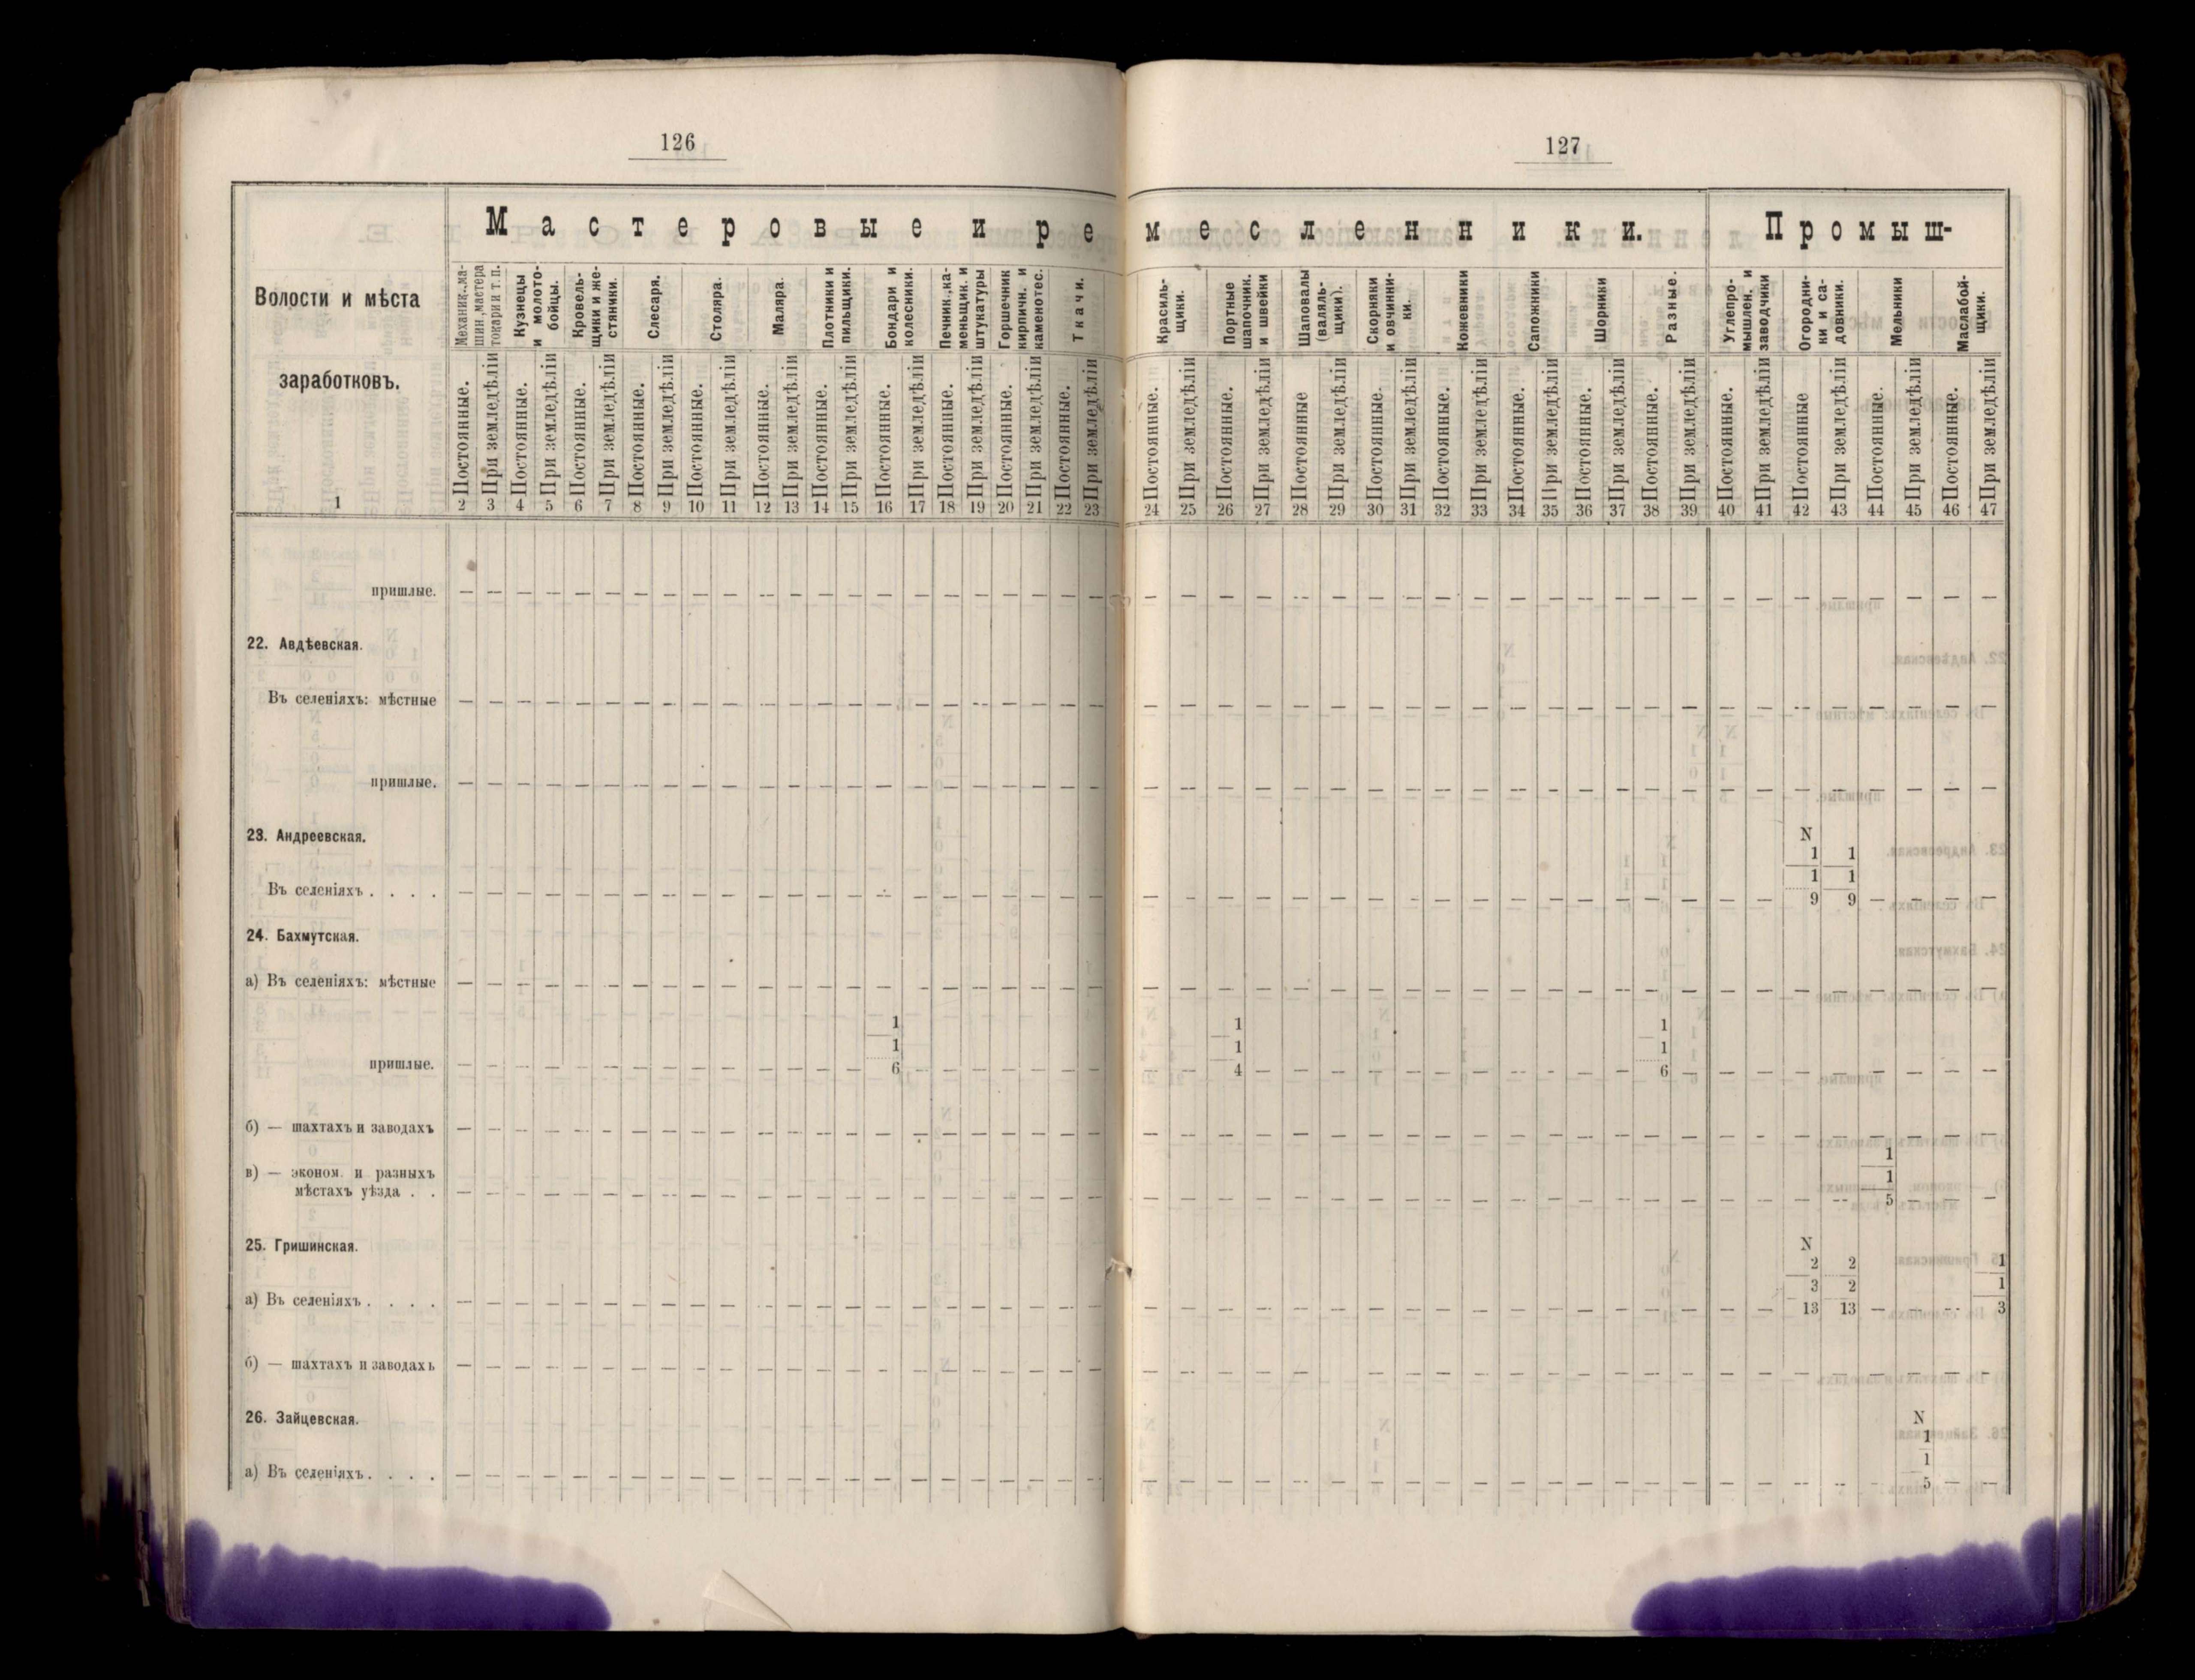 126
127
Мастеровые и ремесленники.
Промыш-
Волости и мѣста
заработковъ.
Механик., ма-
шин., мастера
токари и т. п.
Кузнецы
и молото-
бойцы.
Кровель-
щики и же-
стяники.
Слесаря.
Столяра.
Маляра.
Плотники и
пильщики.
Бондари и
колесники.
Печник., ка-
меньщик. и
штукатуры
Горшечник
кирпичн. и
каменотес.
Ткачи.
Красиль-
щики.
Портные
шапочник.
и швейки
Шаповалы
(валяль-
щики).
Скорняки
и овчинни-
ки.
Кожовники
Сапожники
Шорники
Разные.
Углепро-
мышлен. и
заводчики
Огородни-
ки и са-
довники.
Мельники
Маслабой-
щики.
Постоянные. При земледѣліи Постоянные. При земледѣліи Постоянные. При земледѣліи Постоянные. При земледѣліи Постоянные. При земледѣліи Постоянные. При земледѣліи Постоянные. При земледѣліи Постоянные. При земледѣліи Постоянные. При земледѣліи Постоянные. При земледѣліи Постоянные. При земледѣліи Постоянные. При земледѣліи Постоянные. При земледѣліи Постоянные При земледѣліи Постоянные. При земледѣліи Постоянные. При земледѣліи Постоянные. При земледѣліи Постоянные. При земледѣліи Постоянные. При земледѣліи Постоянные. При земледѣліи Постоянные При земледѣліи Постоянные. При земледѣліи Постоянные. При земледѣліи
1 2 3 4 5 6 7 8 9 10 11 12 13 14 15 16 17 18 19 20 21 22 23 24 25 26 27 28 29 30 31 32 33 34 35 36 37 38 39 40 41 42 43 44 45 46 47
пришлые. — — — — — — — — — — — — — — — — — — — — — — — — — — — — — — — — — — — — — — — — — — — — — —
22. Авдѣевская.
Въ селеніяхъ: мѣстные — — — — — — — — — — — — — — — — — — — — — — — — — — — — — — — — — — — — — — — — — — — — — —
пришлые. — — — — — — — — — — — — — — — — — — — — — — — — — — — — — — — — — — — — — — — — — — — — — —
23. Андреевская. N
1 1
1 1
Въ селеніяхъ . . . . — — — — — — — — — — — — — — — — — — — — — — — — — — — — — — — — — — — — — — — — 9 9 — — — —
24. Бахмутская.
а) Въ селеніяхъ: мѣстные — — — — — — — — — — — — — — — — — — — — — — — — — — — — — — — — — — — — — — — — — — — — — —
1 1 1
1 1 1
пришлые. — — — — — — — — — — — — — — 6 — — — — — — — — — 4 — — — — — — — — — — — 6 — — — — — — — — —
б) — шахтахъ и заводахъ — — — — — — — — — — — — — — — — — — — — — — — — — — — — — — — — — — — — — — — — — — — — — —
1
в) — эконом. и разныхъ 1
мѣстахъ уѣзда . . — — — — — — — — — — — — — — — — — — — — — — — — — — — — — — — — — — — — — — — — — — 5 — — —
25. Гришинская. N
2 2 1
3 2 1
а) Въ селеніяхъ . . . . — — — — — — — — — — — — — — — — — — — — — — — — — — — — — — — — — — — — — — — — 13 13 — — — 3
б) — шахтахъ и заводахъ — — — — — — — — — — — — — — — — — — — — — — — — — — — — — — — — — — — — — — — — — — — — — —
26. Зайцевская. N
1
1
а) Въ селеніяхъ . . . . — — — — — — — — — — — — — — — — — — — — — — — — — — — — — — — — — — — — — — — — — — — 5 — —